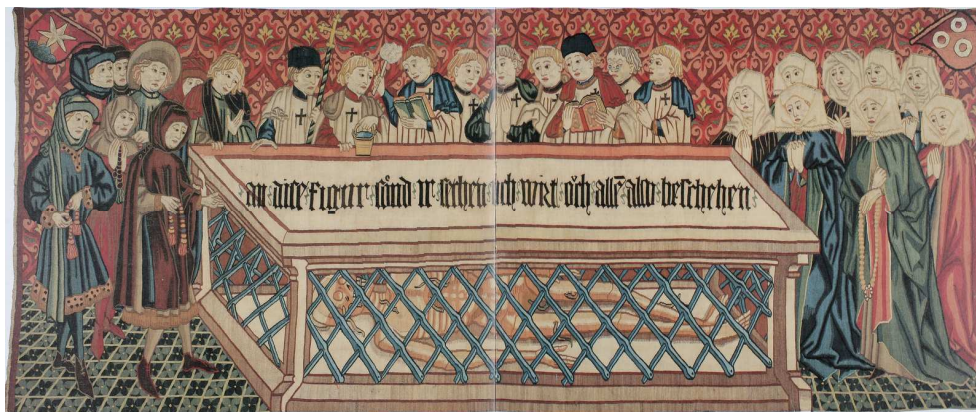 an dise figeur sŏnd ir sechen üch wirt ŏch allē also beschehen